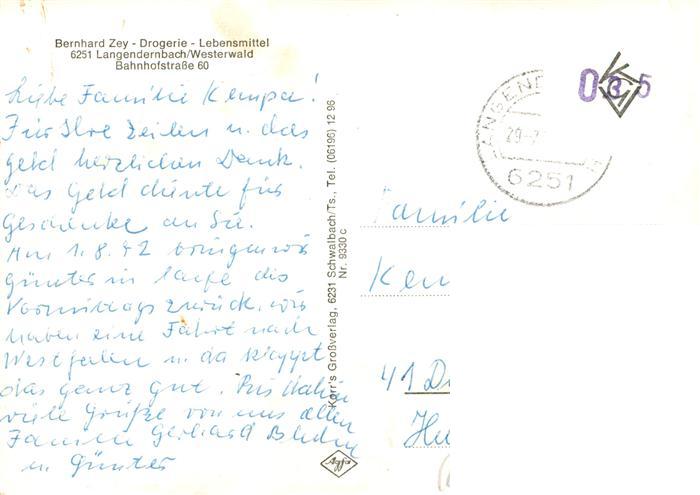 Bernhard Zey - Drogerie - Lebensmittel
6251 Langendernbach/Westerwald
Bahnhofstraße 60
Liebe Familie Kempa!
Für Ihre Zeilen u. das
Geld herzlichen Dank.
Das Geld diente für
Geschenke an Sie.
Am 1.8.72 bringen wir
Günter im Laufe des
Vormittags zurück. Wir
haben eine Fahrt nach
Westfalen u. da klappt
das ganz gut. Bis dahin
viele Grüße von uns allen
Familie Gerhard
u. Günter
Korr's Großverlag, 6231 Schwalbach/Ts., Tel. (06196) 12 96
Nr. 9330 c
Agfa
ANGENDE
29.-7.
6251
Familie
Kem
41 D